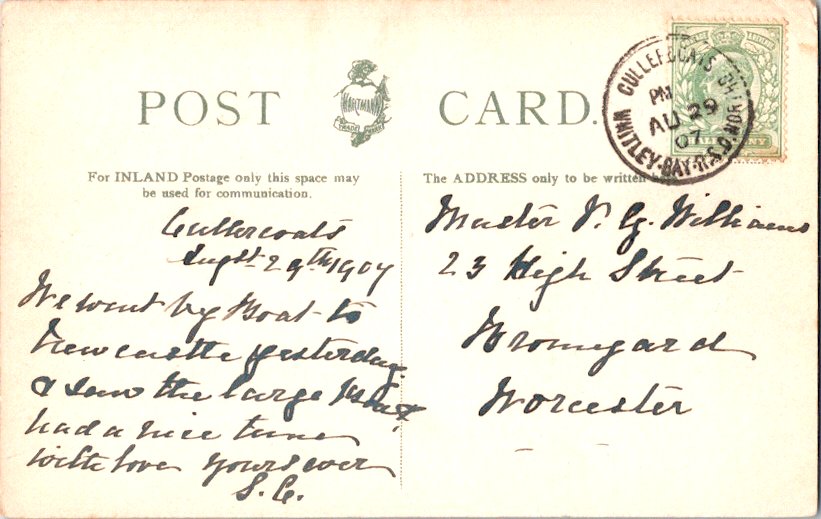 POST CARD.
HARTMANN
TRADE MARK
CULLERCOATS
PM
AU 29
07
WHITLEY-BAY-R.S.O.
For INLAND Postage only this space may
be used for communication.
The ADDRESS only to be written
Cullercoats
Augst 29th 1907
We went by Boat to
Newcastle yesterday
& saw the large Boat
had a nice time
with love yours ever
S. C.
Master V. G. Williams
23 High Street
Bromyard
Worcester